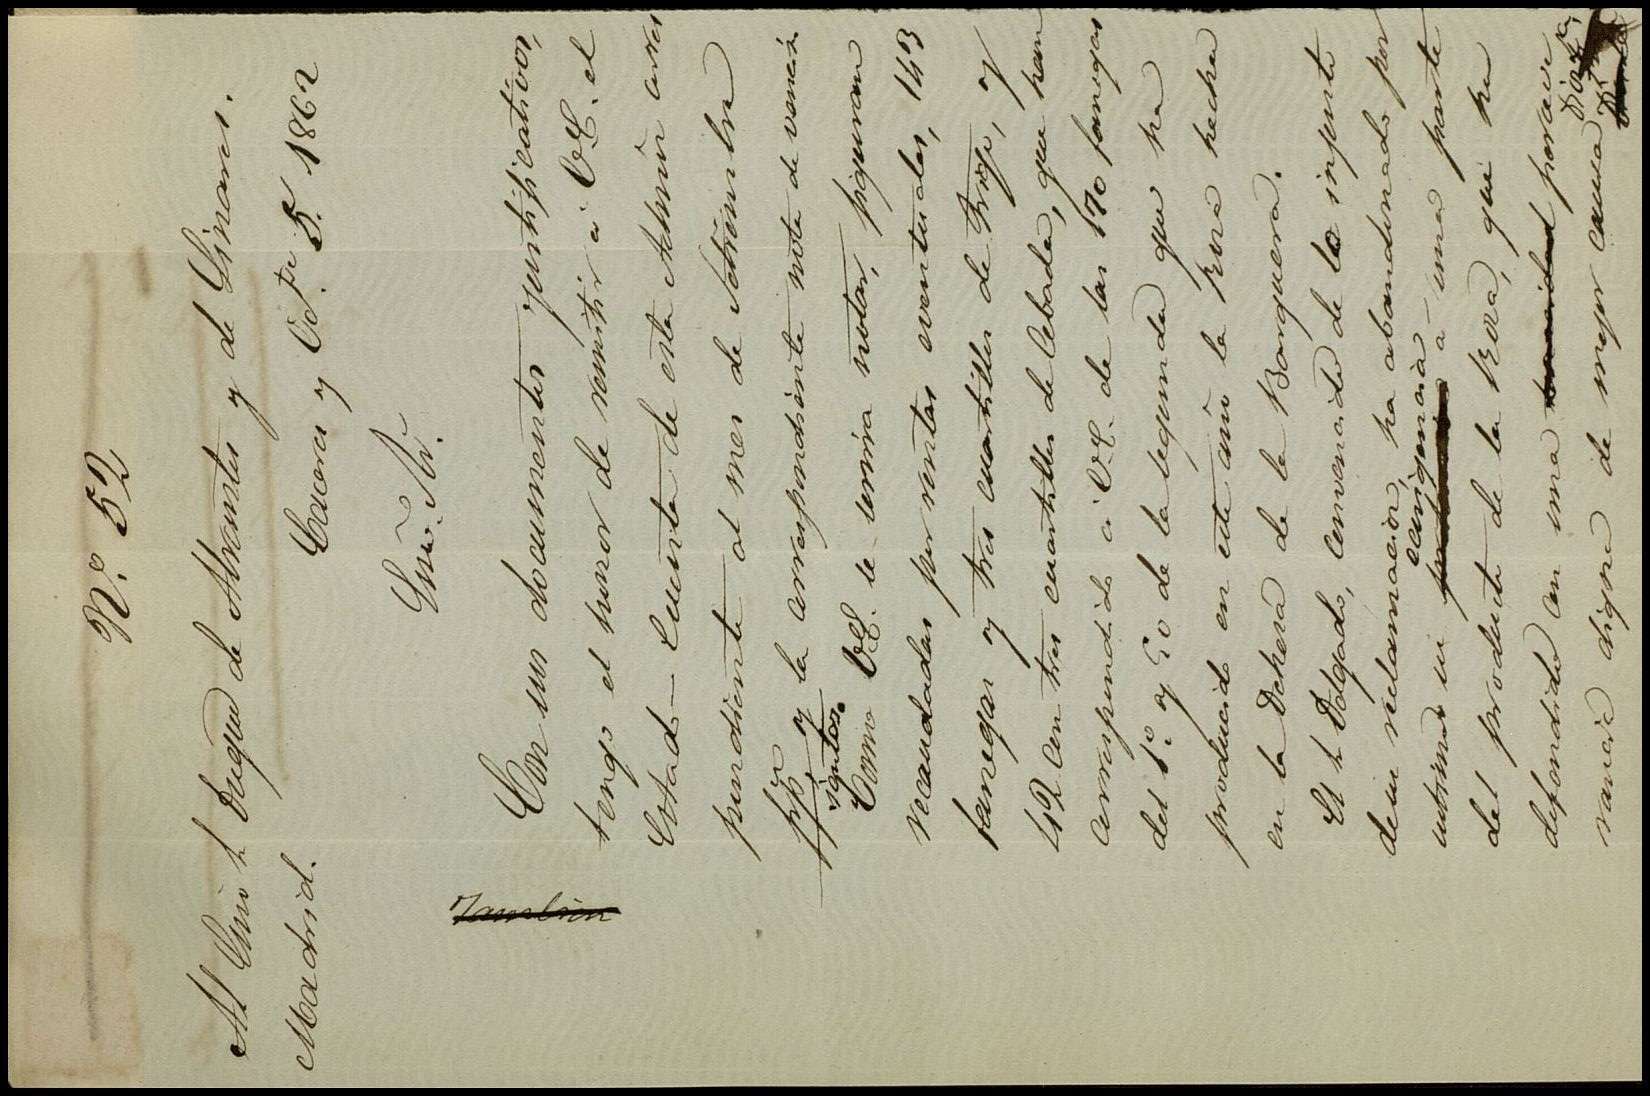 Nº. 52
Al Excmo Sr Duque de Abrantes y de Linares.
Madrid.
Caceres y Oct.re 5. 1862
Excmo. Sr.
Con sus documentos justificativos,
tengo el honor de remitir á V.E. el
Estado-Cuenta de esta Admón corres
pondiente al mes de Setiembre
ppdo y la correspondiente nota de venci
Como V.E. se servira notar, figuran
recaudadas por rentas eventuales, 143
fanegas y tres cuartillas de trigo, y
42 con tres cuartillas de Cebada, que han
correspondido a V.E. de las 170 fanegas
del 1º. y 50 de la segunda que ha
producido en este año la hoja hecha
en la Dehesa de la Borreguera.
El Sr Delgado, convencido de lo injusto
de su reclamacion, ha abandonado por
exigencia
á una parte
del producto de la hoja, que ha
defendido con una
rancia digna de mejor causa
Tambien